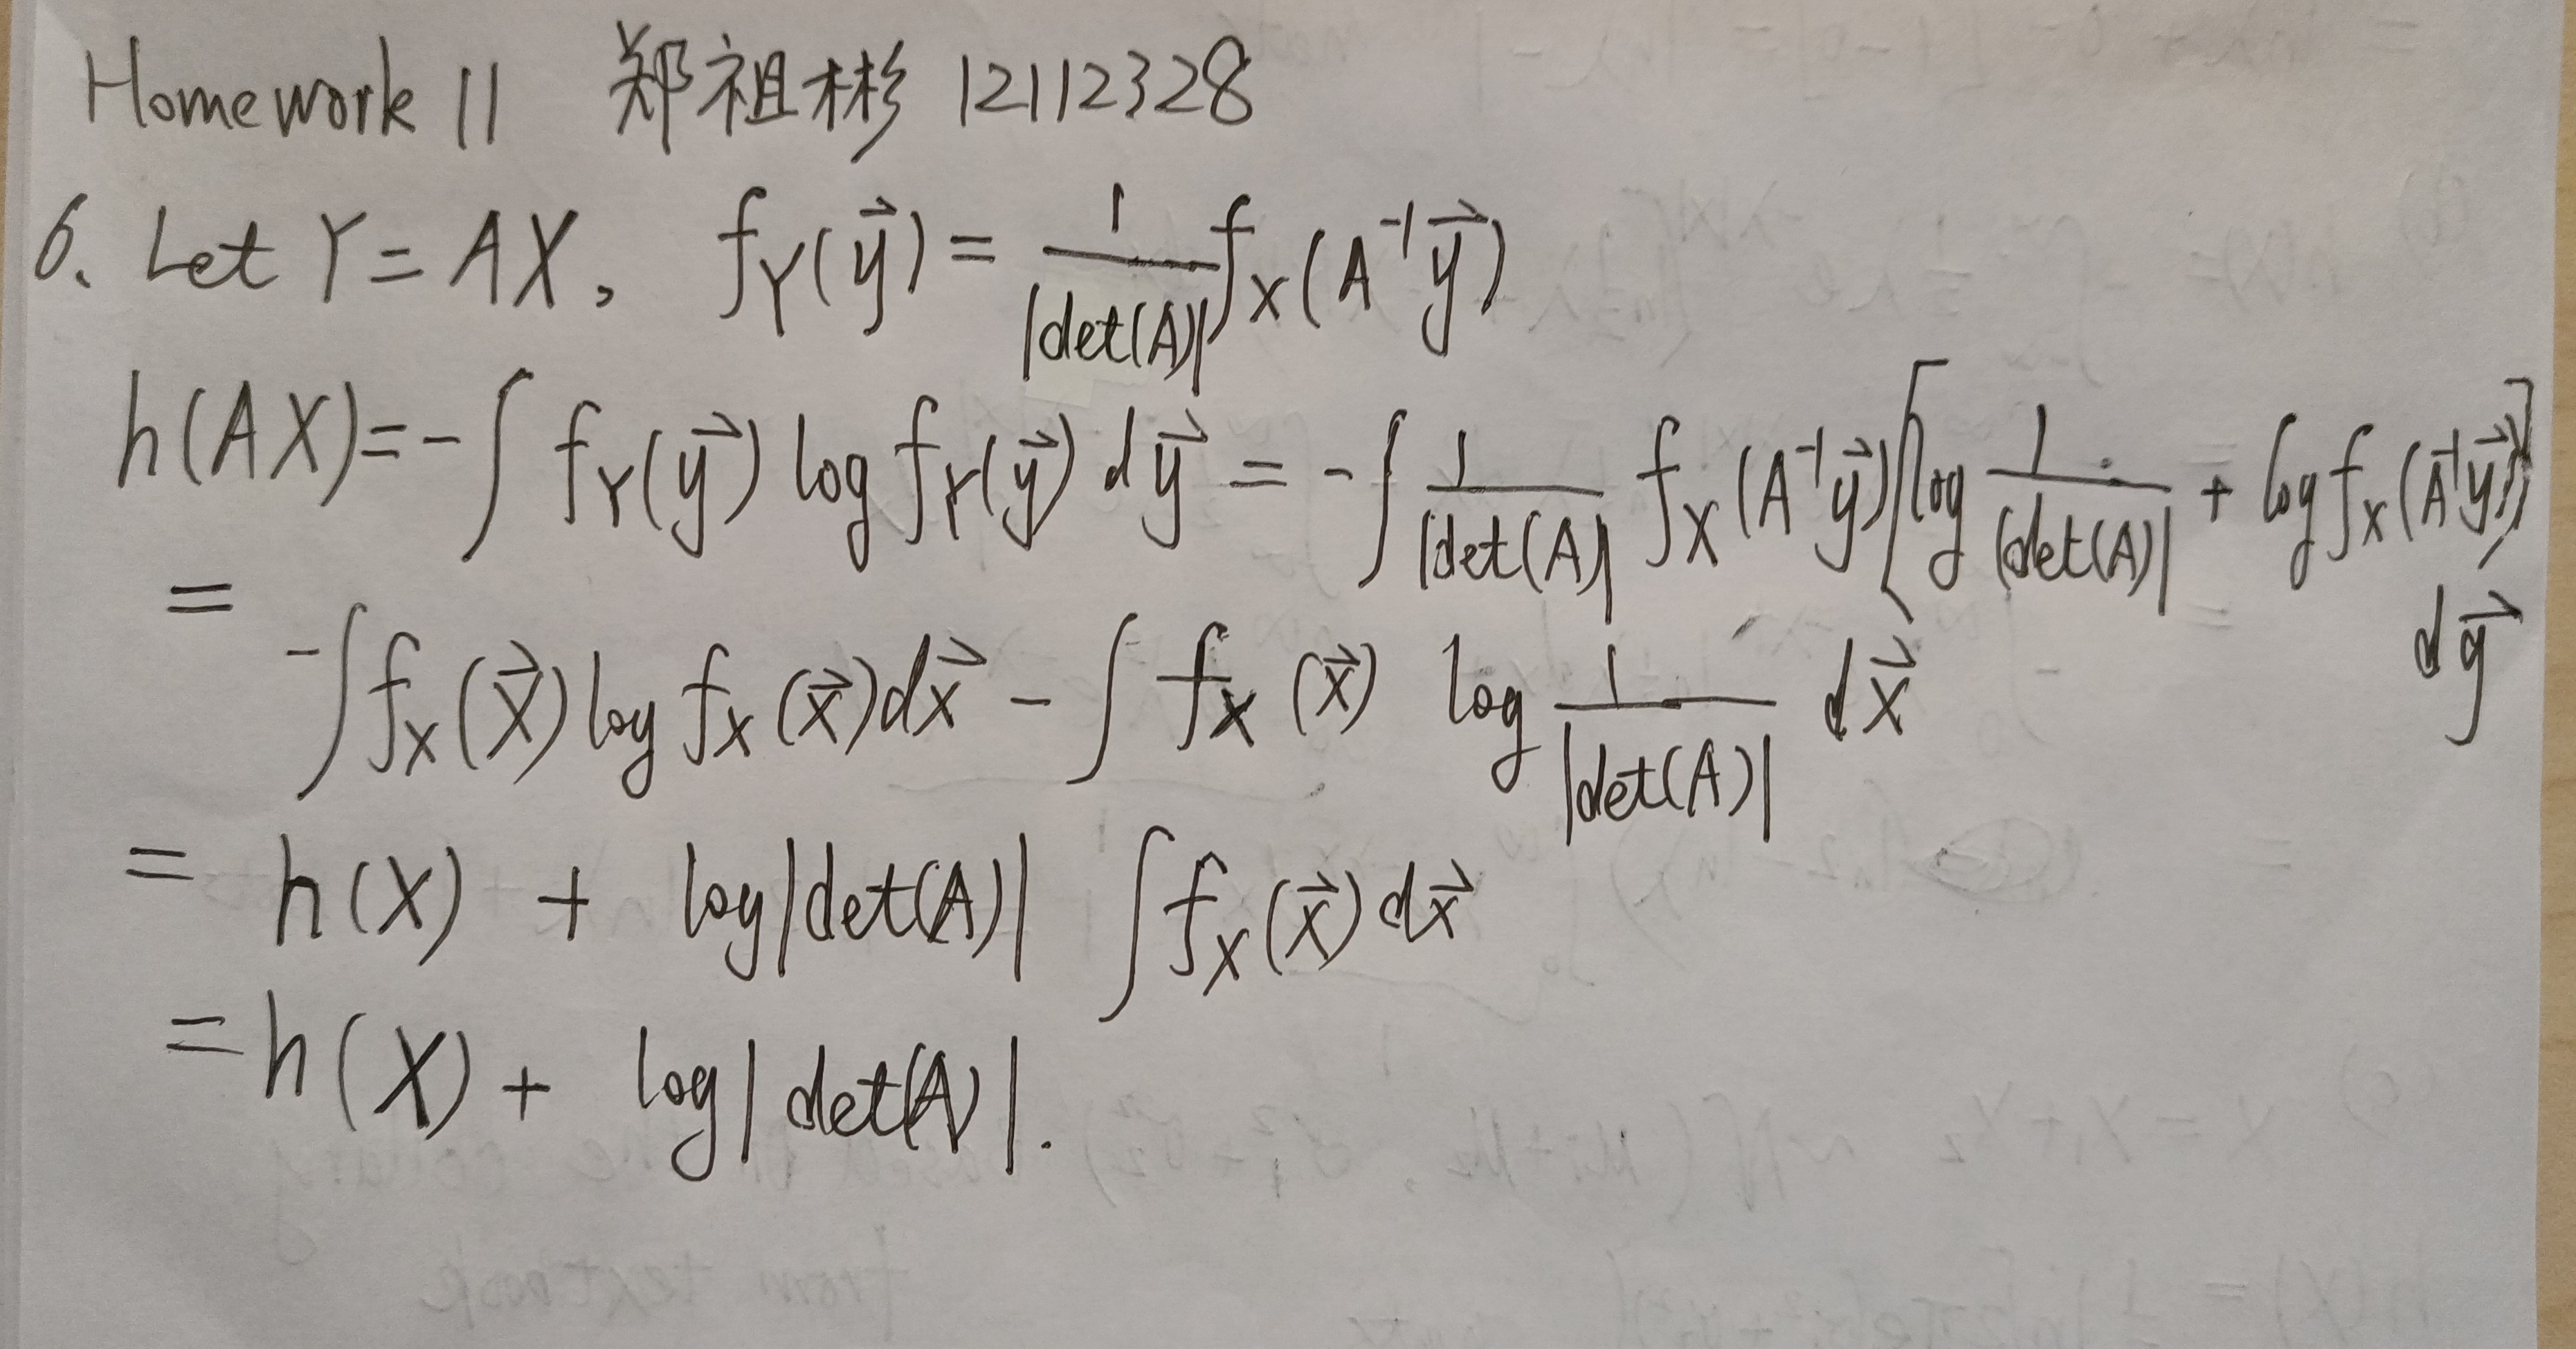 Homework 11 郑祖彬 12112328
6. Let Y = AX, f_Y(\vec{y}) = \frac{1}{|det(A)|} f_X(A^{-1}\vec{y})
h(AX) = -∫ f_Y(\vec{y}) log f_Y(\vec{y}) d\vec{y} = -∫ \frac{1}{|det(A)|} f_X(A^{-1}\vec{y}) [log \frac{1}{|det(A)|} + log f_X(A^{-1}\vec{y})]
d\vec{y}
= -∫ f_X(\vec{x}) log f_X(\vec{x}) d\vec{x} - ∫ f_X(\vec{x}) log \frac{1}{|det(A)|} d\vec{x}
= h(X) + log|det(A)| ∫ f_X(\vec{x}) d\vec{x}
= h(X) + log|det(A)|.